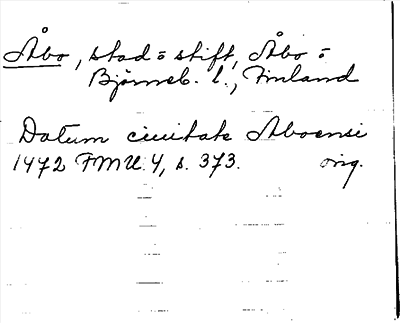 Åbo, stad o stift, Åbo o
Björneb. l., Finland
Datum ciuitate Aboensi
1472 FMU 4, s. 373. orig.